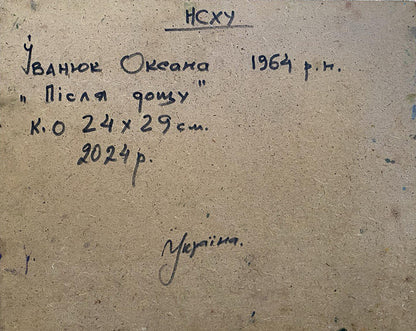 НСХУ
Іванюк Оксана 1964 р.н.
„Після дощу"
К.О 24x29 см.
2024р.
Україна.